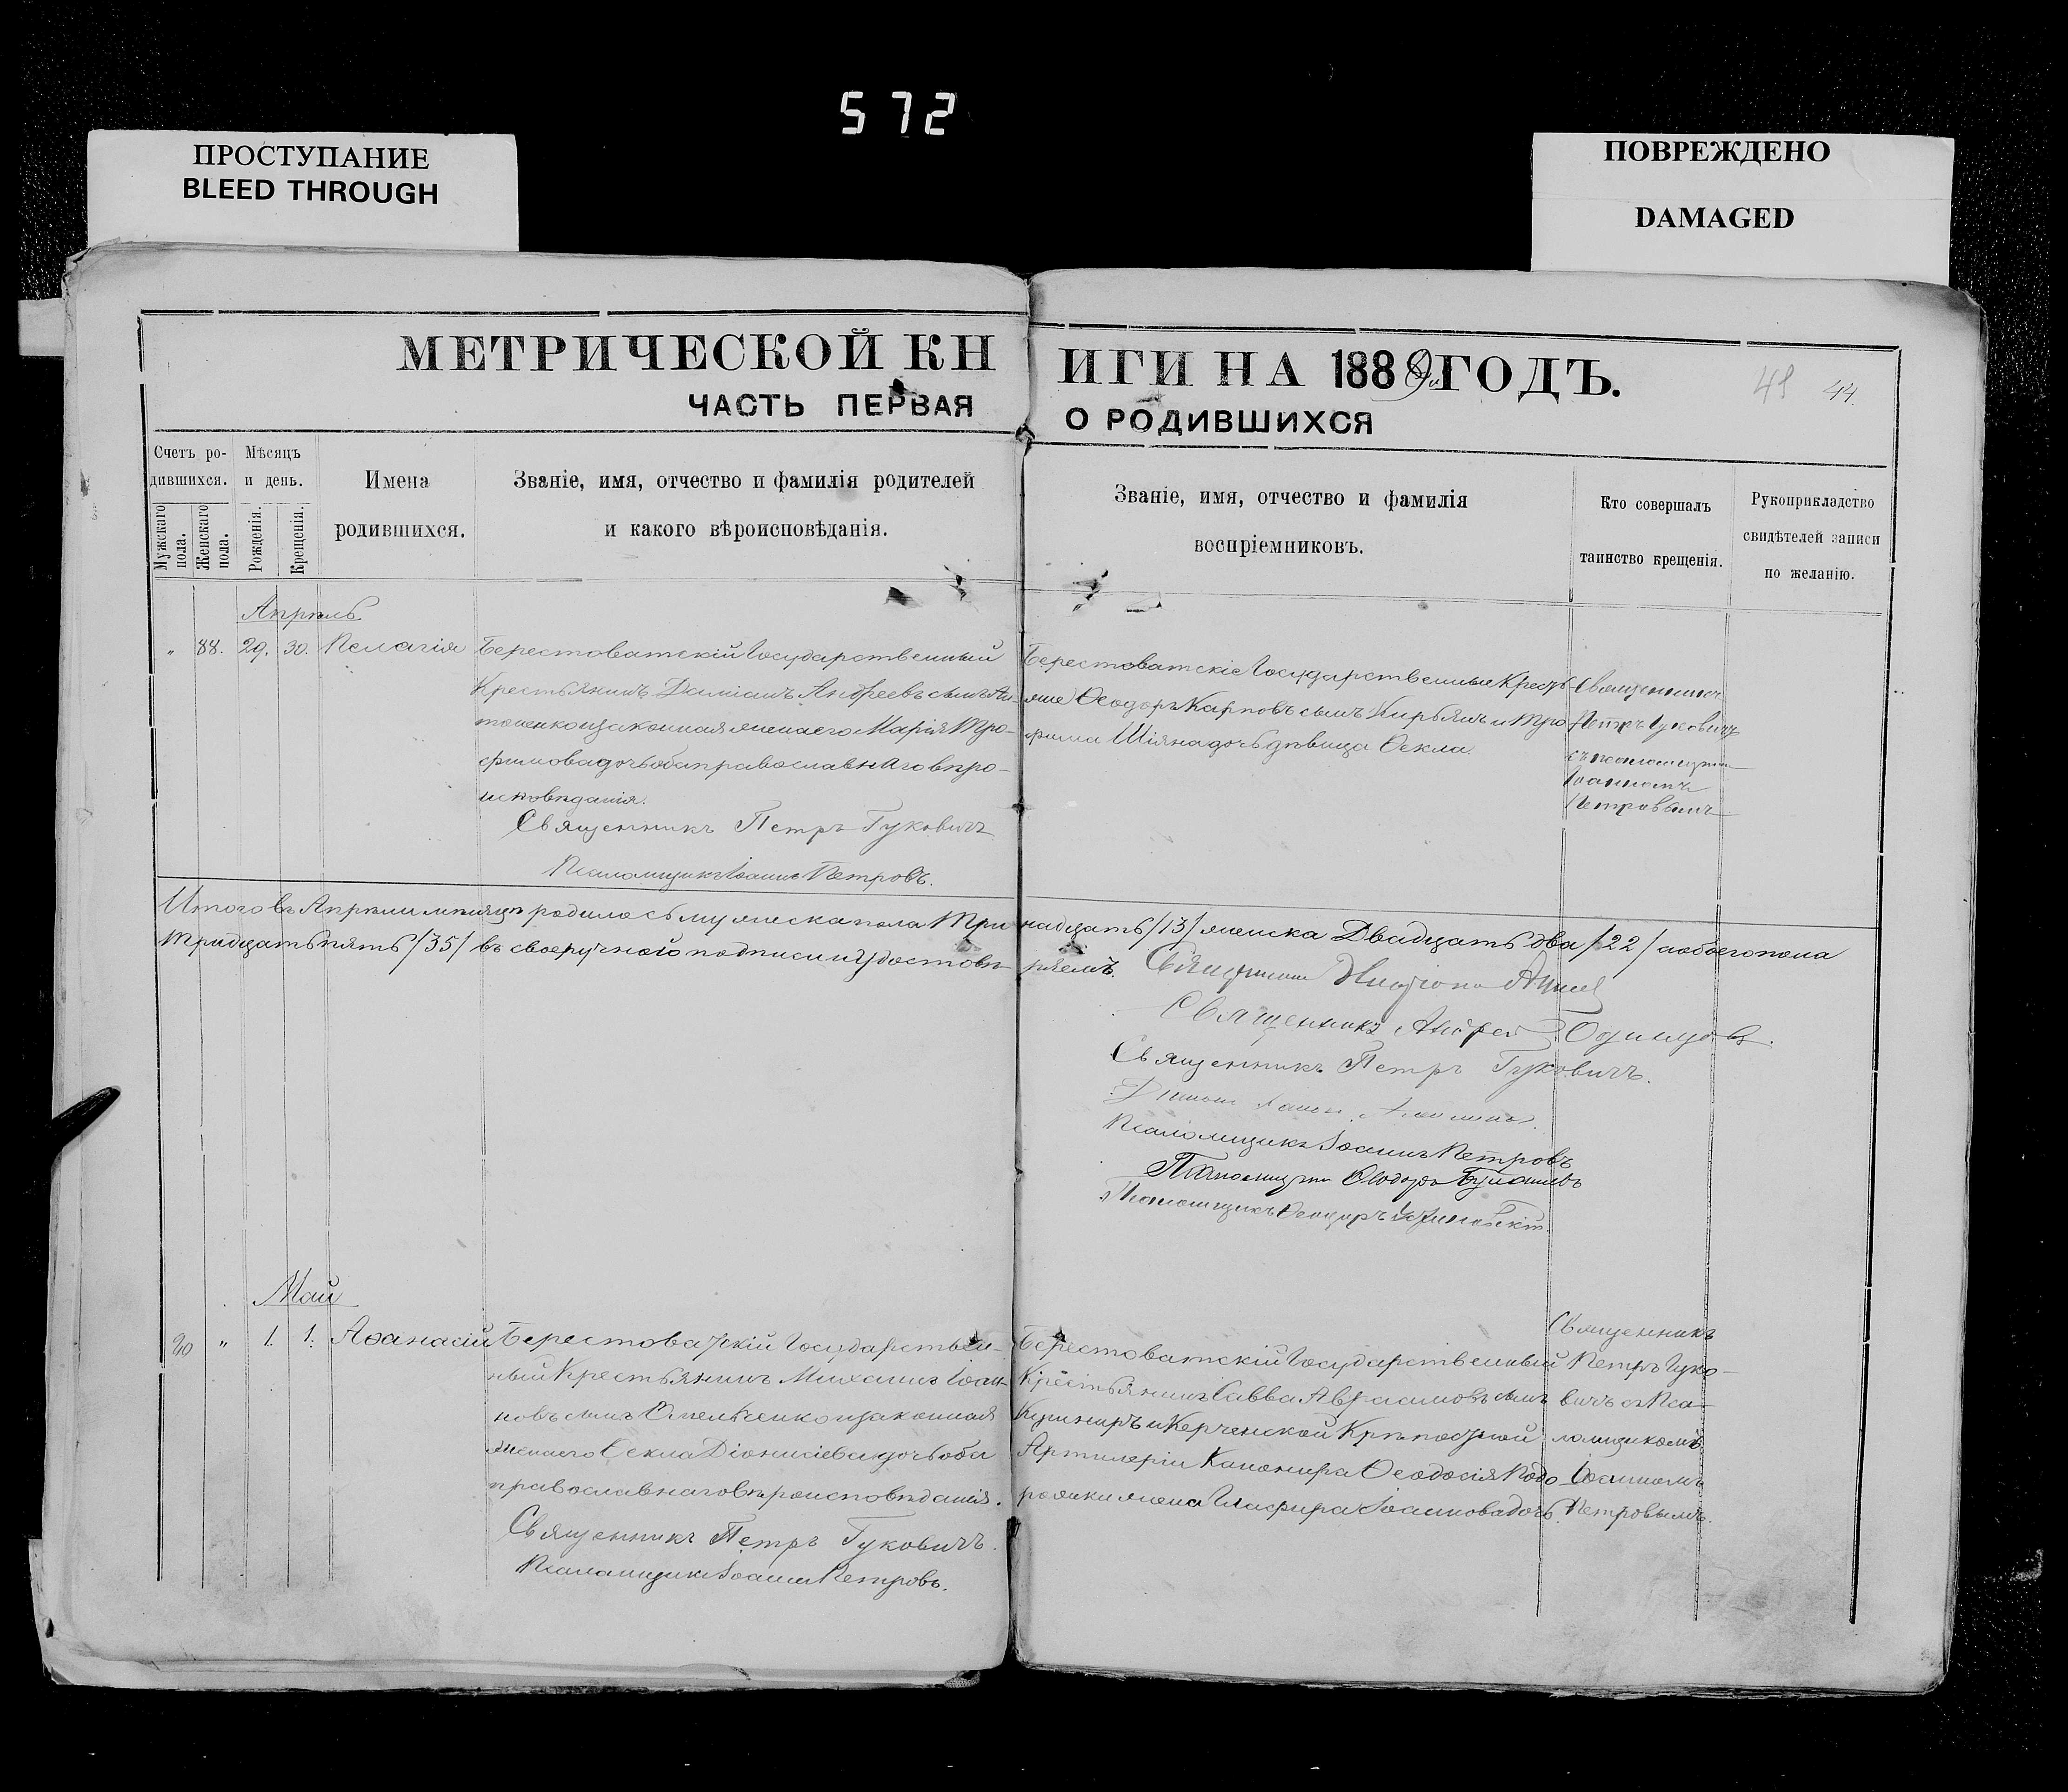 572
ПРОСТУПАНИЕ
BLEED THROUGH
ПОВРЕЖДЕНО
DAMAGED
МЕТРИЧЕСКОЙ КНИГИ НА 1889 ГОДЪ.
ЧАСТЬ ПЕРВАЯ О РОДИВШИХСЯ
44.
Счетъ ро-
дившихся.
Мужскаго пола.
Женскаго пола.
Мѣсяцъ
и день.
Рожденія.
Крещенія.
Имена
родившихся.
Званіе, имя, отчество и фамилія родителей
и какого вѣроисповѣданія.
Званіе, имя, отчество и фамилія
воспріемниковъ.
Кто совершалъ
таинство крещенія.
Рукоприкладство
свидѣтелей записи
по желанію.
Апрѣль
" 88. 29. 30. Пелагія
Берестоватскій Государственный
Крестьянинъ Даміанъ Андреевъ сынъ Ан-
тоненко и законная жена его Марія Тро-
фимова дочь оба православнаго вѣро-
исповѣданія.
Священникъ Петръ Гуковичъ
Псаломщикъ Іоаннъ Петровъ.
Берестоватскіе Государственные Кресть-
яне Ѳеодоръ Карповъ сынъ Кирьянъ и Тро-
фима Шіяна дочь дѣвица Ѳекла
Священникъ
Петръ Гуковичъ
съ псаломщикомъ
Іоанномъ
Петровымъ
Итого въ Апрѣли мѣсяцѣ родилось мужеска пола Тринадцать /13/ женска Двадцать два /22/ а обоего пола
Тридцать пять /35/ въ своеручного подписи и удостовѣряемъ. Священникъ
Священникъ Андрей Одинцовъ.
Священникъ Петръ Гуковичъ.
Псаломщикъ Іоаннъ Петровъ
Псаломщикъ Ѳеодоръ
Псаломщикъ Ѳеодоръ
Май
90 " 1. 1. Аѳанасій
Берестоватскій Государствен-
ный Крестьянинъ Михаилъ Іоан-
новъ сынъ Омельченко и законная
жена его Ѳекла Діонисіева дочь оба
православнаго вѣроисповѣданія.
Священникъ Петръ Гуковичъ.
Псаломщикъ Іоаннъ Петровъ.
Берестоватскій Государственный
Крестьянинъ Савва Авраамовъ сынъ
Кушниръ и Керченской Крѣпостной
Артилеріи Канонира Ѳеодосія Подо-
рожки жена Глафира Іоаннова дочь.
Священникъ
Петръ Гуко-
вичъ съ Пса-
ломщикомъ
Іоанномъ
Петровымъ.